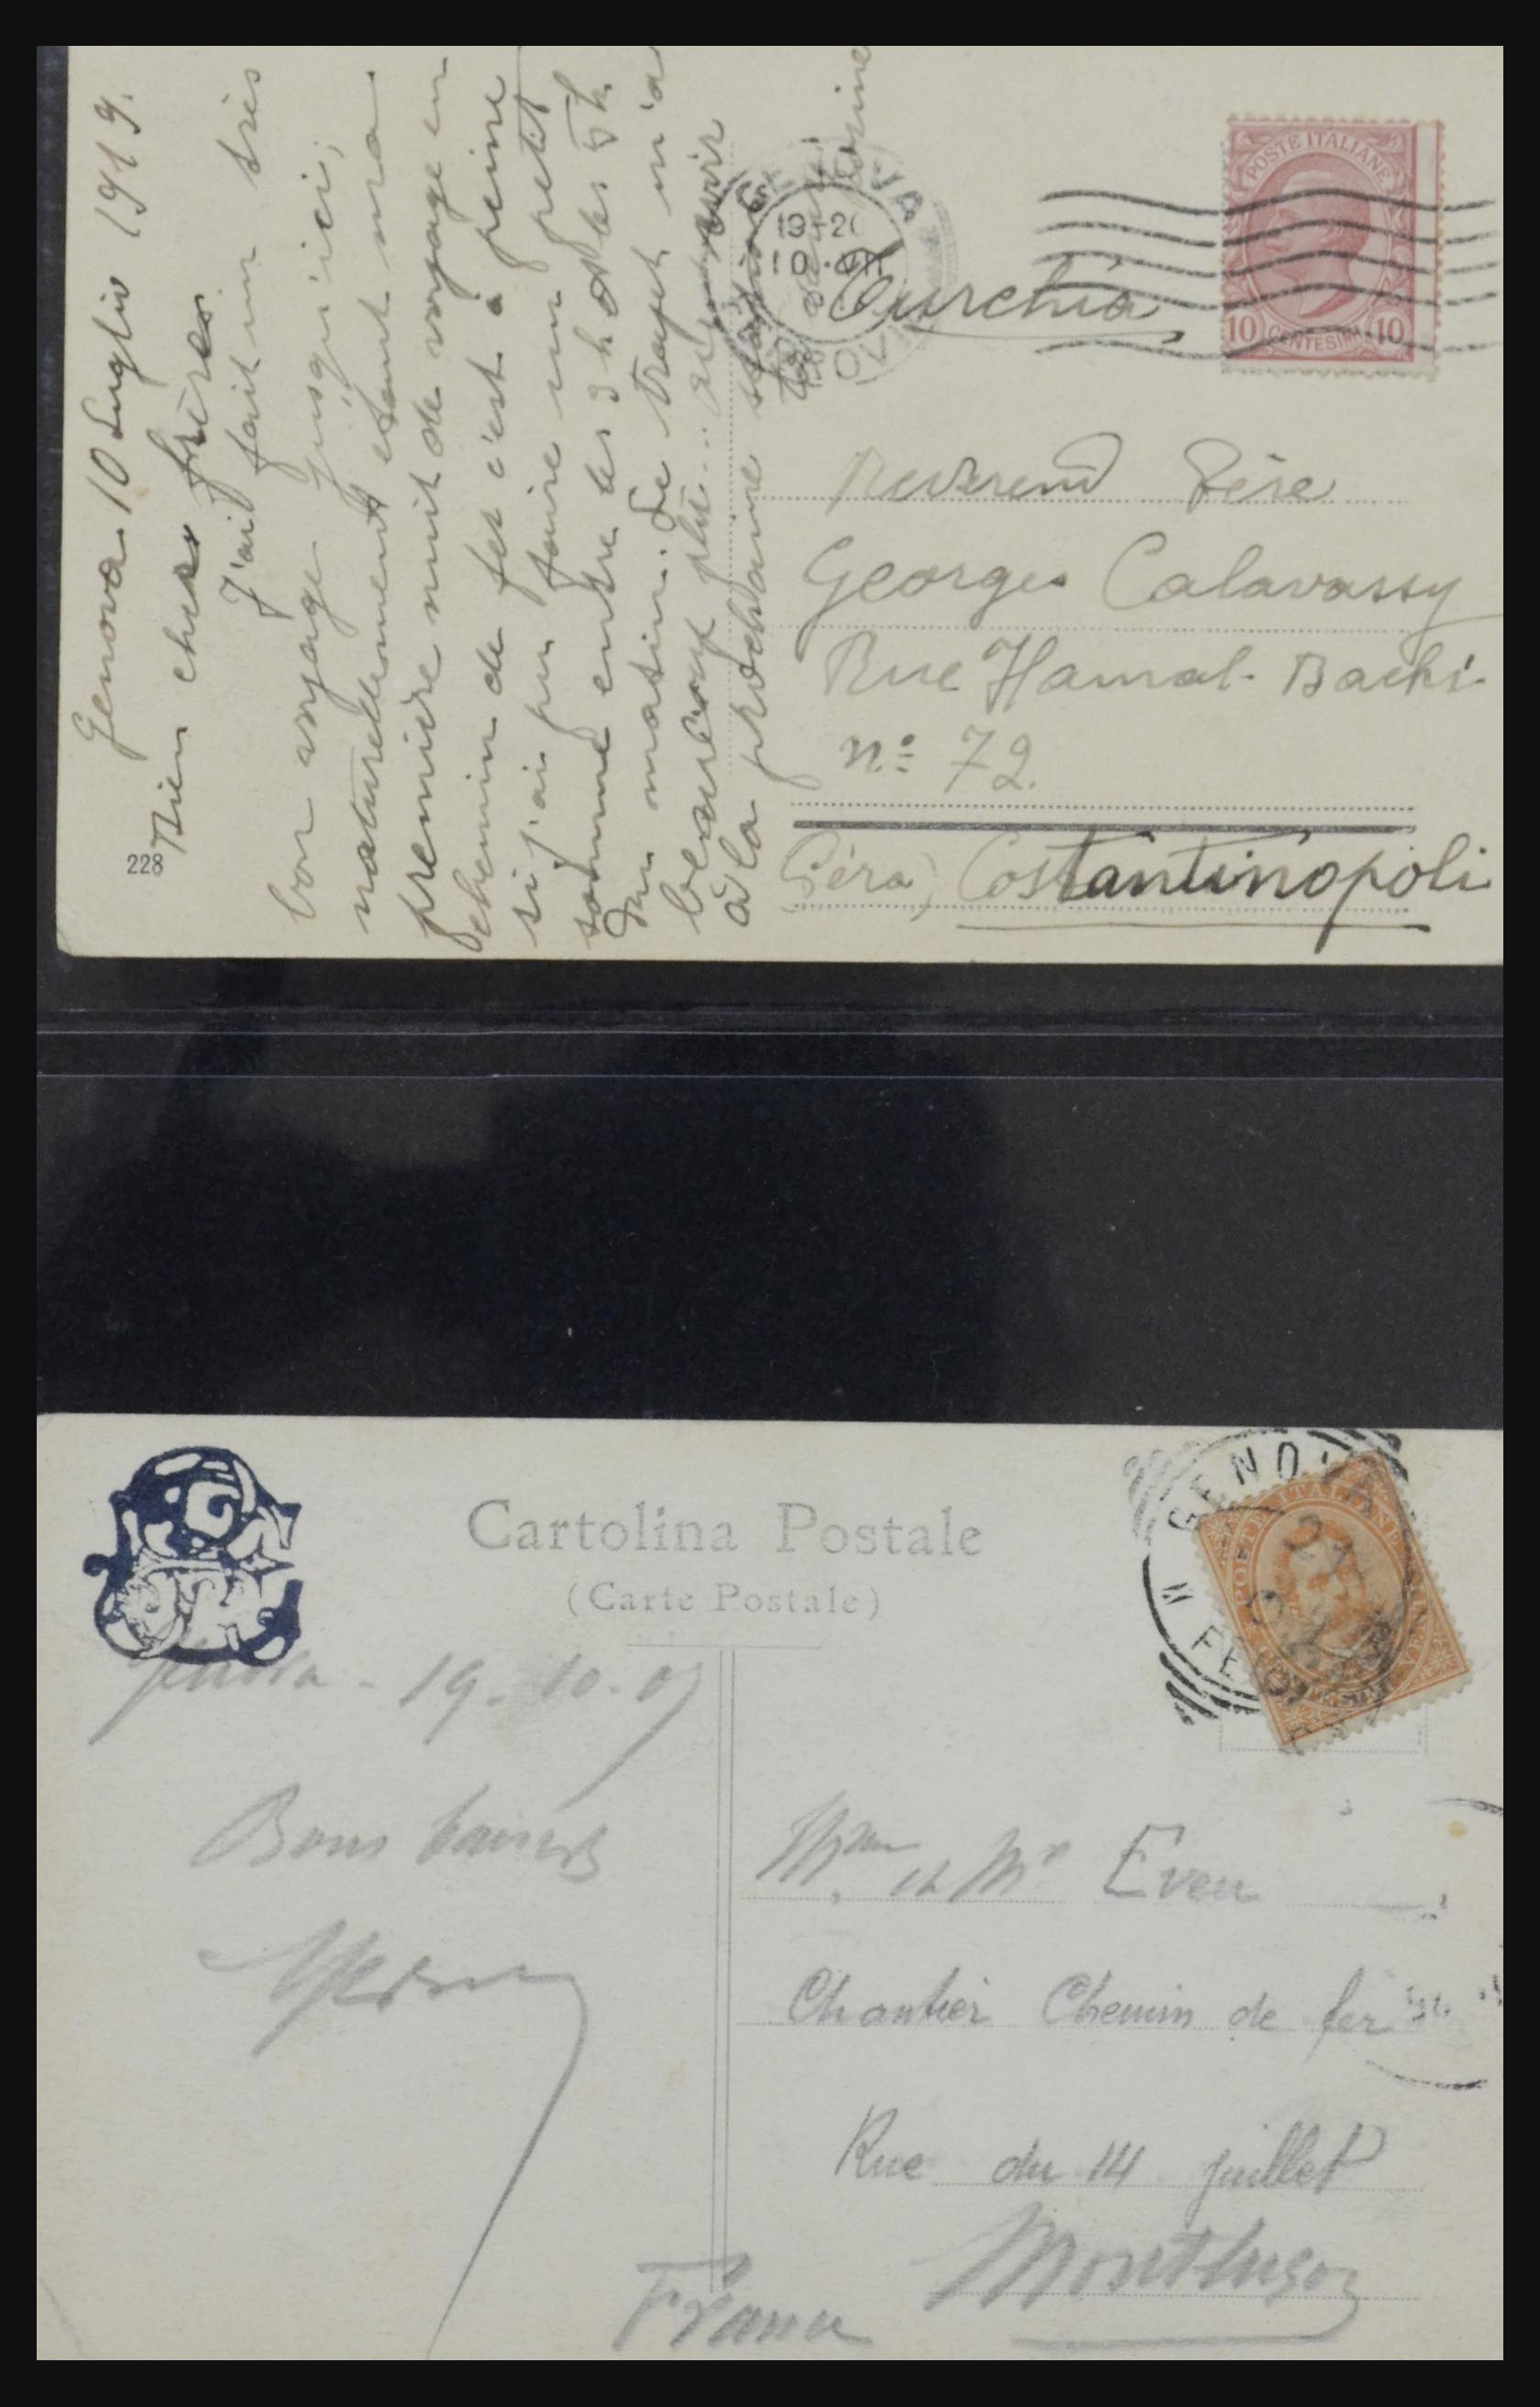 Genova 10 Luglio 1919.
Bien chers frères
J'ai fait un très
bon voyage jusqu'ici;
naturellement étant ma
première nuit de voyage en
chemin de fer c'est à peine
si j'ai pu faire un petit
somme entre les 3 h et les 5 h.
du matin. Le trajet m'a
beaucoup plu...
à la prochaine
228
GENOVA
19-20
10·VII
Turchia
POSTE ITALIANE
10 CENTESIMI 10
Reverend Père
Georges Calavassy
Rue Hamal-Bachi
nº 72.
(Péra) Costantinopoli
Cartolina Postale
(Carte Postale)
GENOVA
Genova - 19-10-07
Bons baisers
Mme et Mr Even
Chantier Chemin de fer
Rue du 14 juillet
Montluçon
France